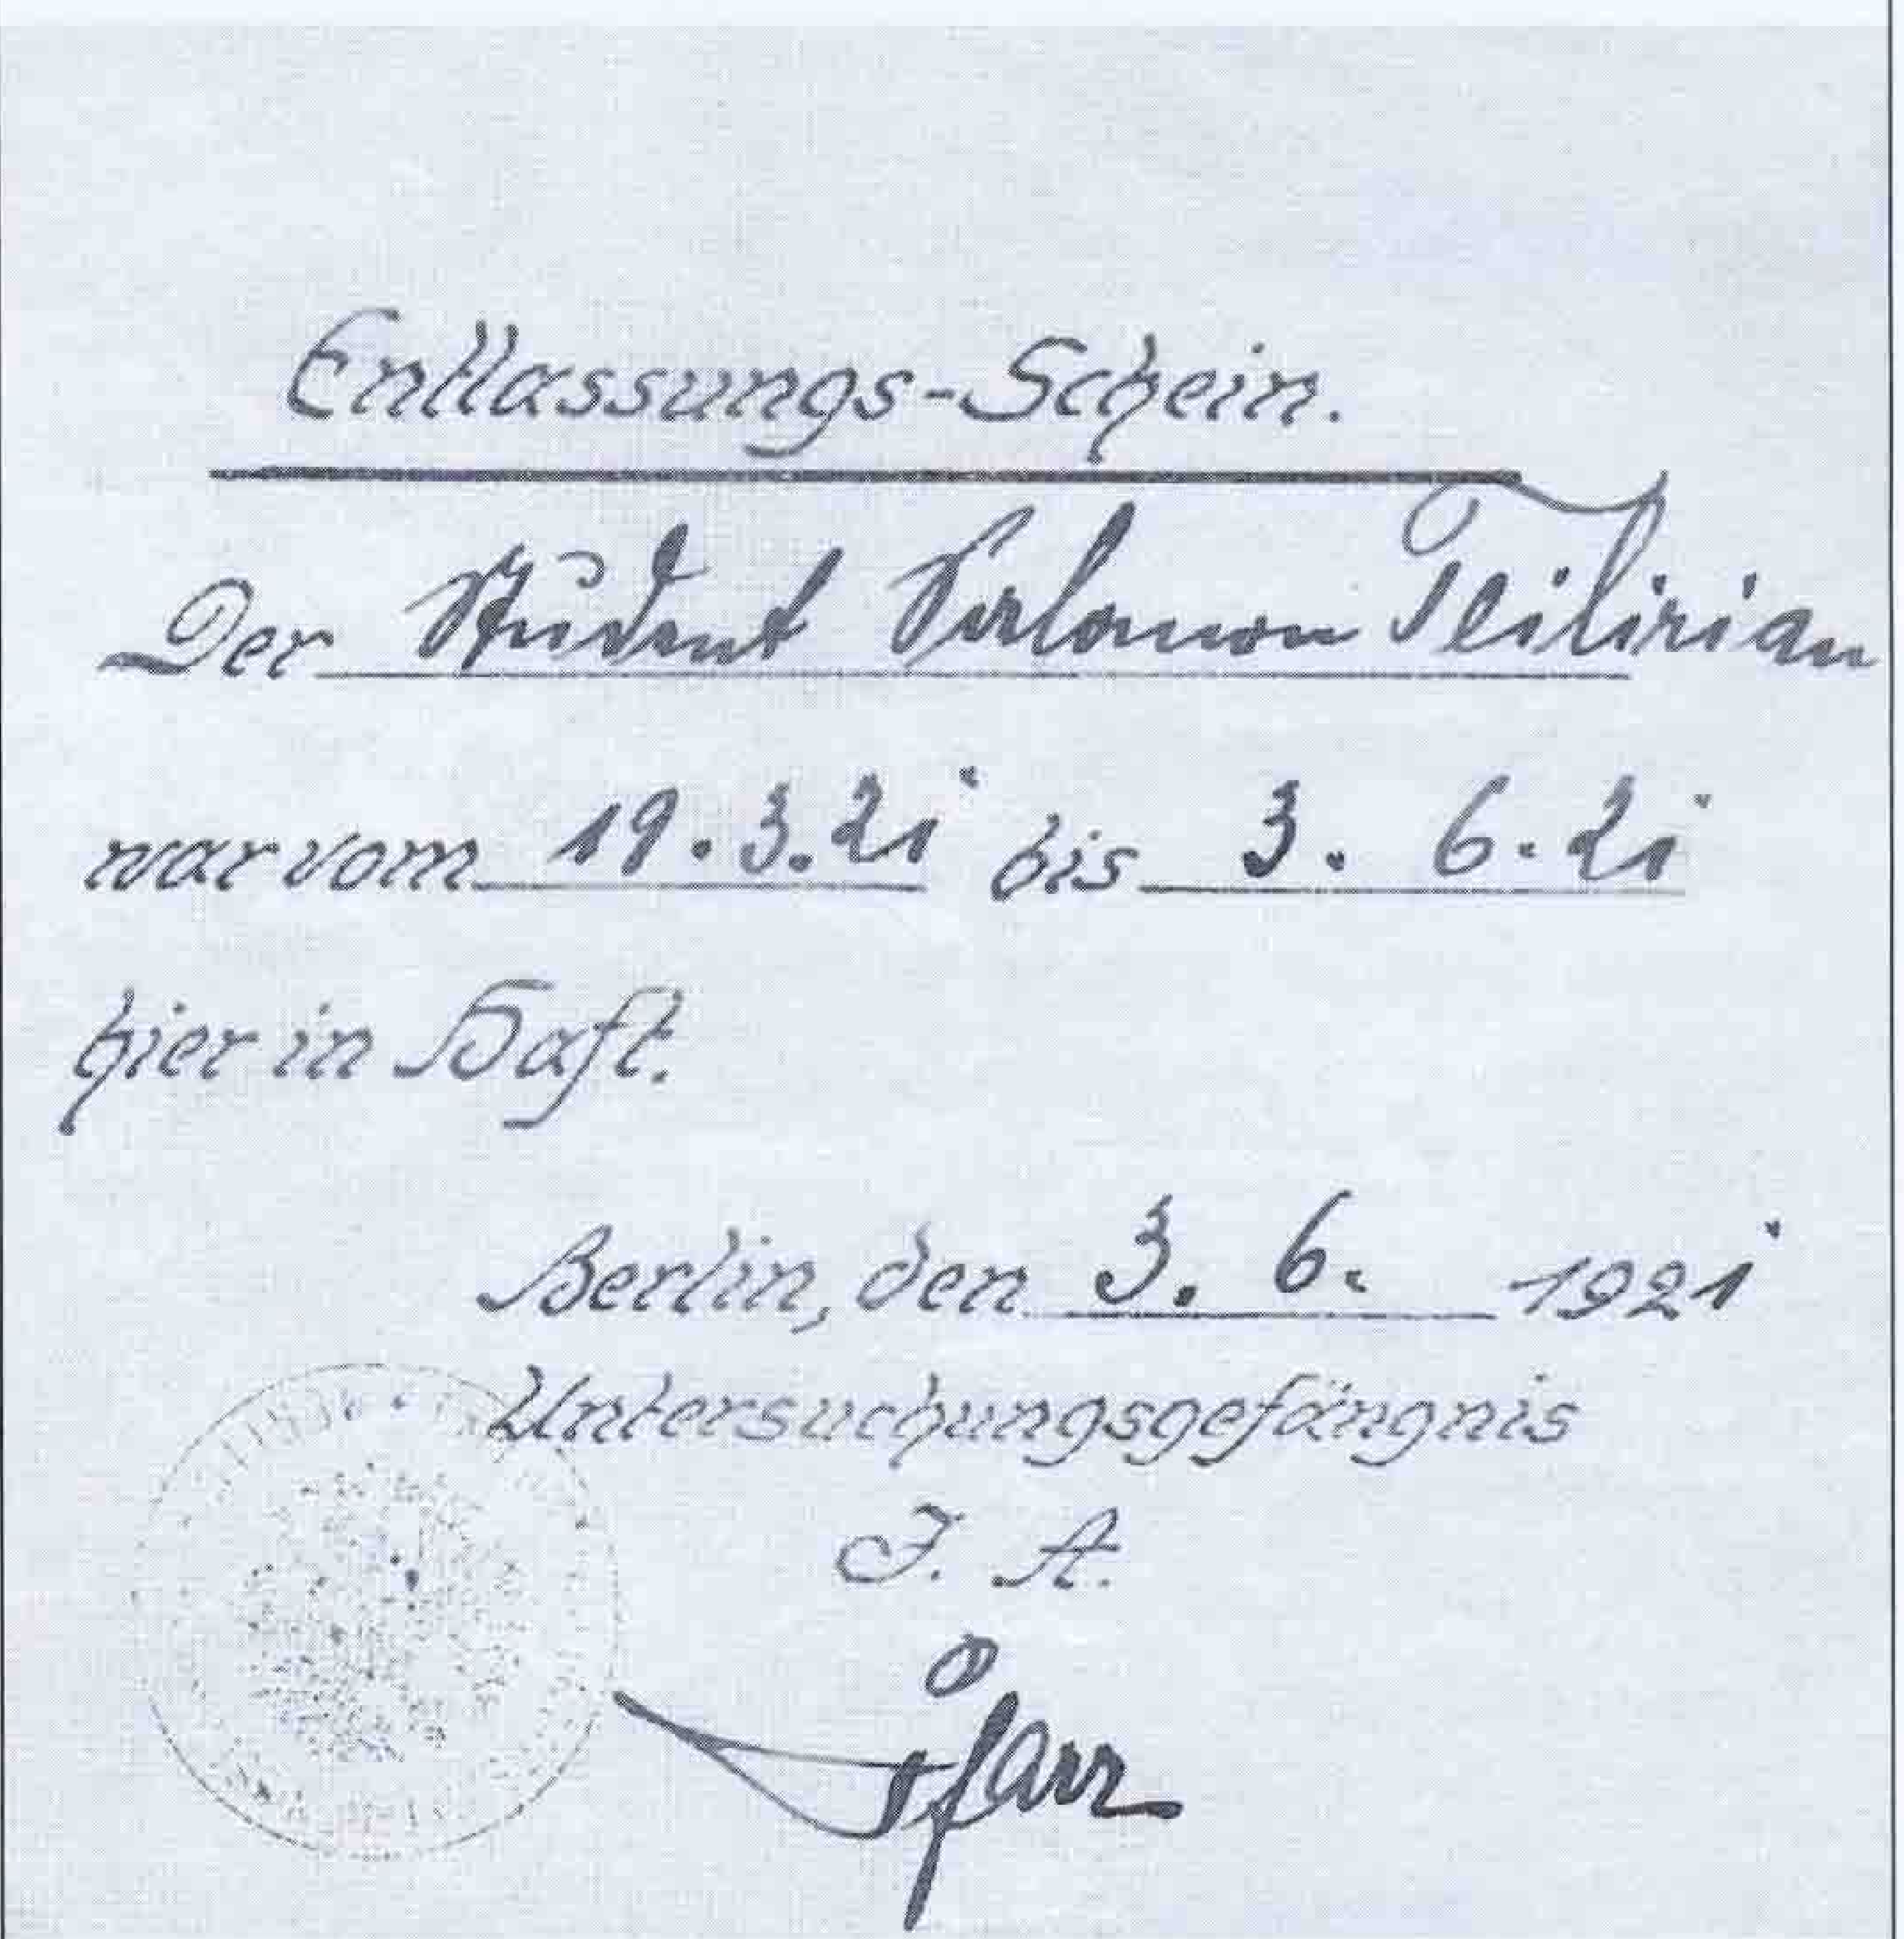 Entlassungs-Schein.
Der Student Salomon Teilirian
war vom 19.3.21 bis 3. 6. 21
hier in Haft.
Berlin, den 3. 6. 1921
Untersuchungsgefängnis
J. A.
Pfarr